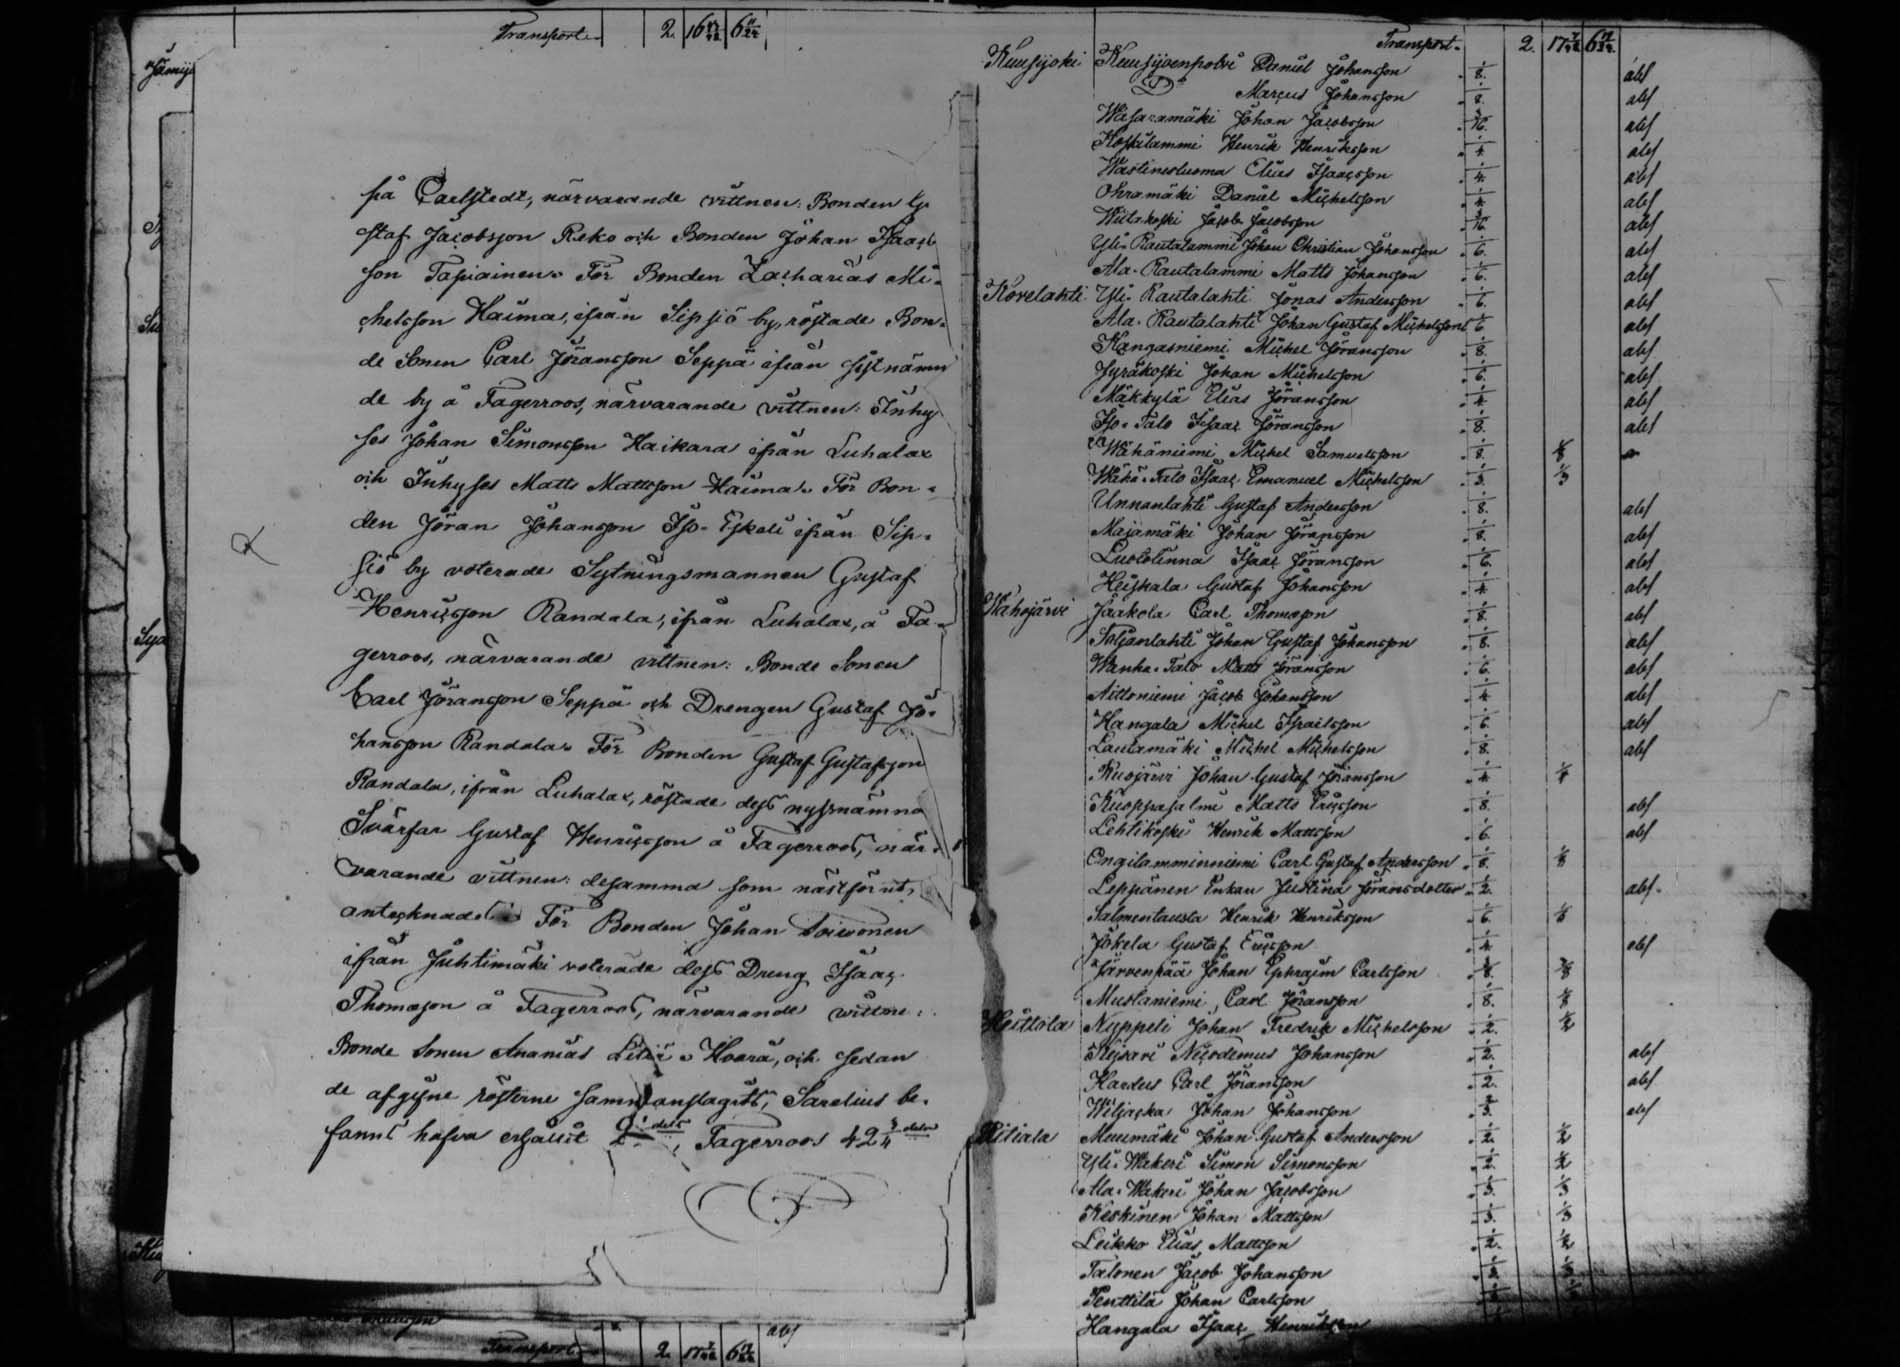 Transport 2 16 6
på Carlstedt, närvarande vittnen: Bonden Gu
staf Jacobsson Reko och Bonden Johan Isaacs
son Tapiainen. För Bonden Zacharias Mi-
chelsson Haima, ifrån Sipsiö by, röstade Bon-
de Sonen Carl Jöransson Seppä ifrån sistnämn
de by å Fagerroos, närvarande vittnen: Inhy
ses Johan Simonsson Haikara ifrån Luhalax
och Inhyses Matts Mattsson Haima. För Bon-
den Jöran Johansson Iso-Eskeli ifrån Sip-
siö by voterade Sytningsmannen Gustaf
Henricsson Randala, ifrån Luhalax, å Fa-
gerroos, närvarande vittnen: Bonde Sonen
Carl Jöransson Seppä och Drengen Gustaf Jo-
hansson Randala. För Bonden Gustaf Gustafsson
Randala, ifrån Luhalax, röstade dess nyssnämna
Svärfar Gustaf Henricsson å Fagerroos, när-
varande vittnen: desamma som nästförut
antecknade. För Bonden Johan Toivonen
ifrån Juhtimäki voterade dess Dreng Isaac
Thomasson å Fagerroos, närvarande vittne:
Bonde Sonen Ananias Hoara, och sedan
de afgifne rösterne sammanslagits, Sarelius be-
fanns hafva erhållit 2 dels, Fagerroos 42 3/4 delar
Transport 2. 17 6
Kuusijoki Kuusijoenpohri Daniel Johansson 1/8. abs
D° Marcus Johansson 1/8. abs
Wasaramäki Johan Jacobsson abs
Koskilammi Henrik Henriksson 1/4. abs
Wastinesluoma Elias Isaacsson 1/4. abs
Ohramäki Daniel Michelsson 1/4. abs
Wiitakoski Jacob Jacobsson abs
Yli-Rautalammi Johan Christian Johansson 1/6. abs
Ala-Rautalammi Matts Johansson 1/6. abs
Kovelahti Yli-Rautalahti Jonas Andersson 1/6. abs
Ala-Rautalahti Johan Gustaf Michelsson 1/6 abs
Kangasniemi Michel Jöransson 1/8. abs
Jyräkoski Johan Michelsson 1/6. abs
Mäkkylä Elias Jöransson 1/4. abs
Iso-Talo Isaac Jöransson 1/8. abs
Wähäniemi Michel Samuelsson 1/8. 1/8
Wähä-Talo Isaac Emanuel Michelsson 1/3. 1/3
Unnanlahti Gustaf Andersson 1/8. abs
Majamäki Johan Jöransson 1/8. abs
Luotolinna Isaac Jöransson 1/6. abs
Heiskala Gustaf Johansson 1/4. abs
Wahojärvi Jaakola Carl Thomasson 1/8. abs
Soljanlahti Johan Gustaf Johansson 1/8. abs
Wanha-Talo Matts Jöransson 1/6. abs
Aittoniemi Jacob Johansson 1/4. abs
Hangala Michel Israelsson 1/6. abs
Lautamäki Michel Michelsson 1/8. abs
Ruojärvi Johan Gustaf Jöransson 1/4. 1/4
Kuoppasalmi Matts Ericsson 1/8. abs
Lehtikoski Henrik Mattsson 1/6. abs
Ongilamminniemi Carl Gustaf Andersson 1/8. 1/8
Leppänen Enkan Justina Jöransdotter 1/2. abs.
Salmentausta Henrik Henriksson 1/6. 1/6
Jokela Gustaf Ericsson 1/4. abs
Järvenpää Johan Ephraim Carlsson 3/8. 3/8
Mustaniemi Carl Jöransson 1/8. 1/8
Heittola Nyppeli Johan Fredrik Michelsson 1/2. 1/2
Keisari Nicodemus Johansson 1/2. abs
Kardus Carl Jöransson 1/2. abs
Wiljacka Johan Johansson abs
Riitiala Muumäki Johan Gustaf Andersson 1/2. 1/2
Yli-Wakeri Simon Simonsson 1/2. 1/2
Ala-Wakeri Johan Jacobsson 1/3. 1/3
Keskinen Johan Mattsson 1/3. 1/3
Leikko Elias Mattsson 1/2. 1/2
Talonen Jacob Johansson
Penttilä Johan Carlsson
Hangala Isaac Henriksson
Transport 2 17 6
abs